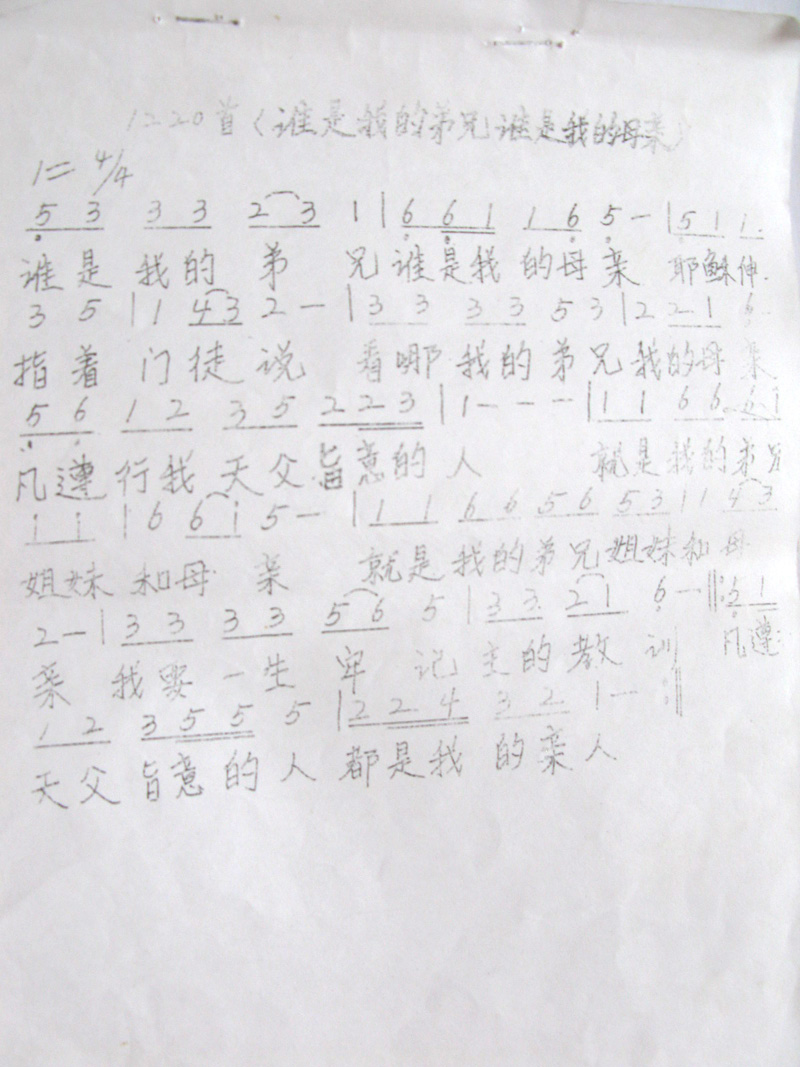 1220首(谁是我的弟兄谁是我的母亲)
1= 4/4
5 3 3 3 2 3 1 | 6 6 1 1 6 5 — | 5 1 1.
谁是我的弟兄谁是我的母亲 耶稣伸
3 5 | 1 4 3 2 — | 3 3 3 3 5 3 | 2 2 1 6
指着门徒说 看哪我的弟兄我的母亲
5 6 1 2 3 5 2 2 3 | 1 — — — | 1 1 6 6 6 i
凡遵行我天父旨意的人 就是我的弟兄
i i | 6 6 i 5 — | 1 1 6 6 5 6 5 3 | 1 4 3
姐妹和母亲 就是我的弟兄姐妹和母
2 — | 3 3 3 3 5 6 5 | 3 3 2 1 6 — ‖: 5 1
亲 我要一生牢记主的教训 凡遵
1 2 3 5 5 5 | 2 2 4 3 2 1 — :‖
天父旨意的人都是我的亲人